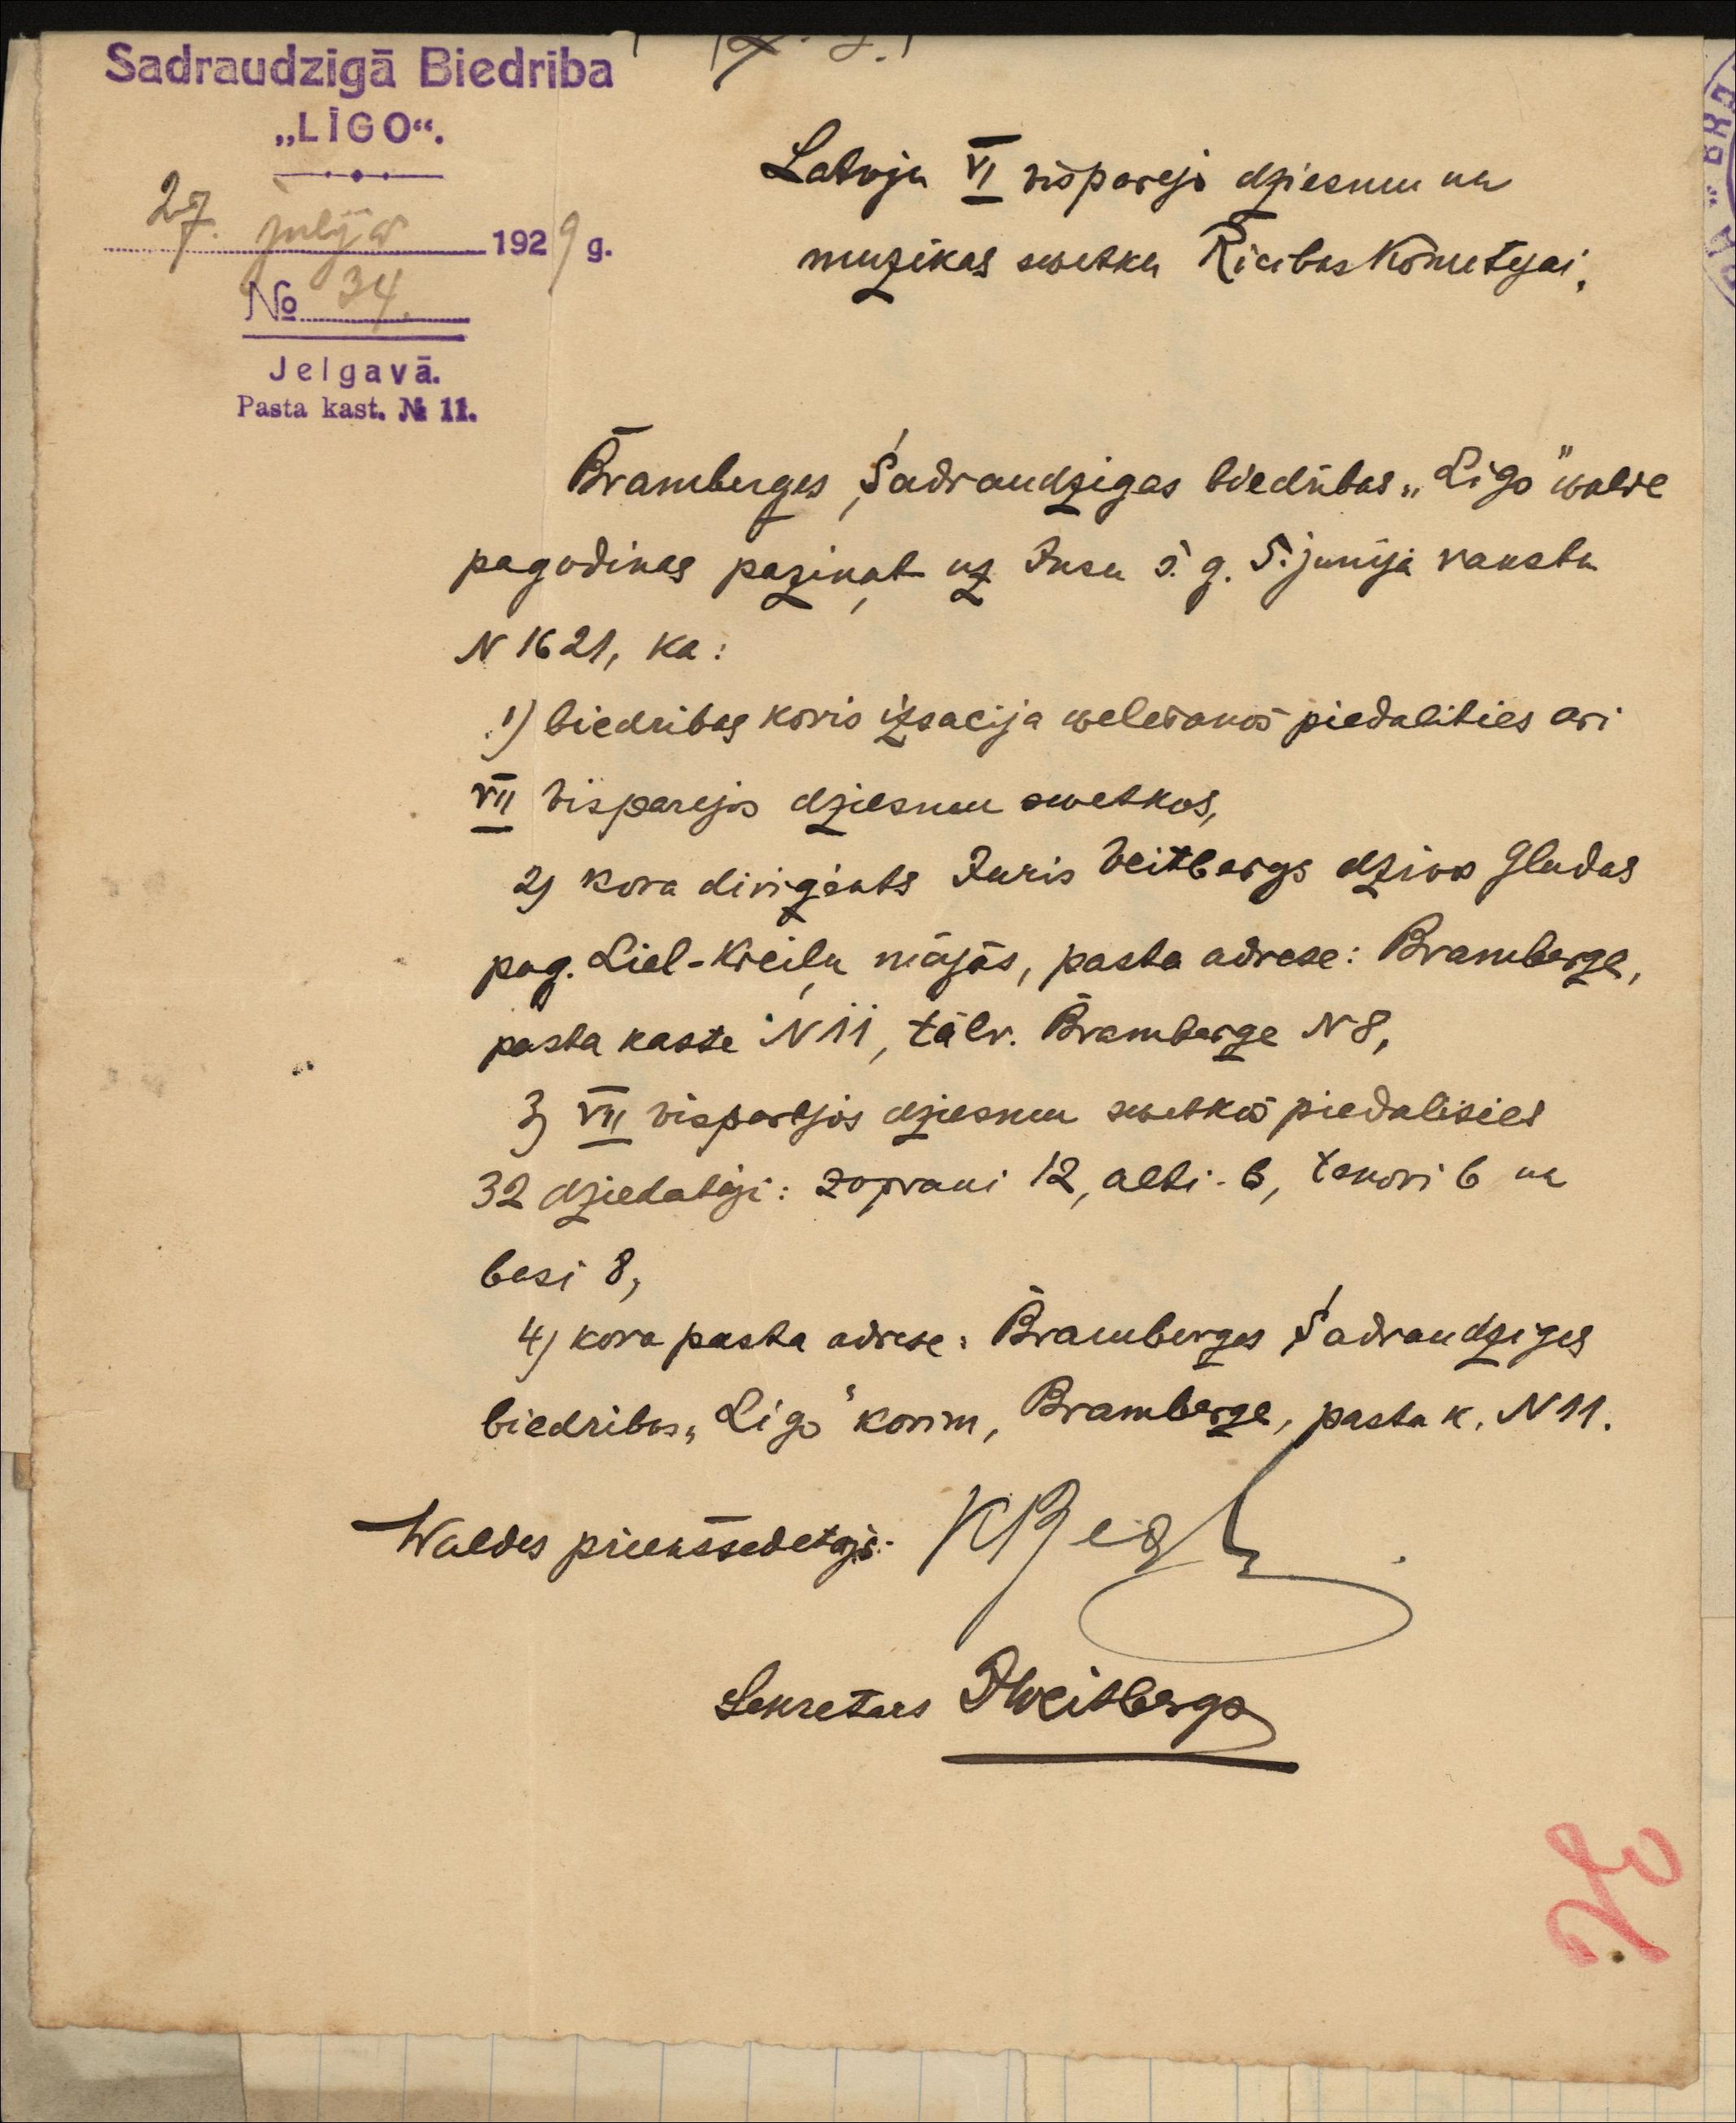 Sadraudzigā Biedriba
„LĪGO“.
27. julijā 1929 g.
No 34.
Jelgavā.
Pasta kast. № 11.
Latvju VI visparejo dziesmu un
muzikas swetku Rīcibas Komitejai.
Bramberges Sadraudzigas biedribas „Ligo” walde
pagodinas paziņot uz Jusu š. g. 5. junija rakstu
N 1621, ka:
1) biedribas koris izsacija welešanos piedalities ari
VII vispārejos dziesmu swetkos,
2) kora diriģents Juris Veitbergs dzivo Gludas
pag. Liel-Kŗeiļu mājās, pasta adrese: Bramberge,
pasta kaste N 11, tālr. Bramberge N 8,
3) VII vispārejos dziesmu swetkos piedalisies
32 dziedataji: zoprani 12, alti - 6, tenori 6 un
basi 8,
4) kora pasta adrese: Bramberges Sadraudzigas
biedribas „Ligo” korim, Bramberge, pasta k. N 11.
Waldes priekšsedetajs:
Sekretars JWeitbergs